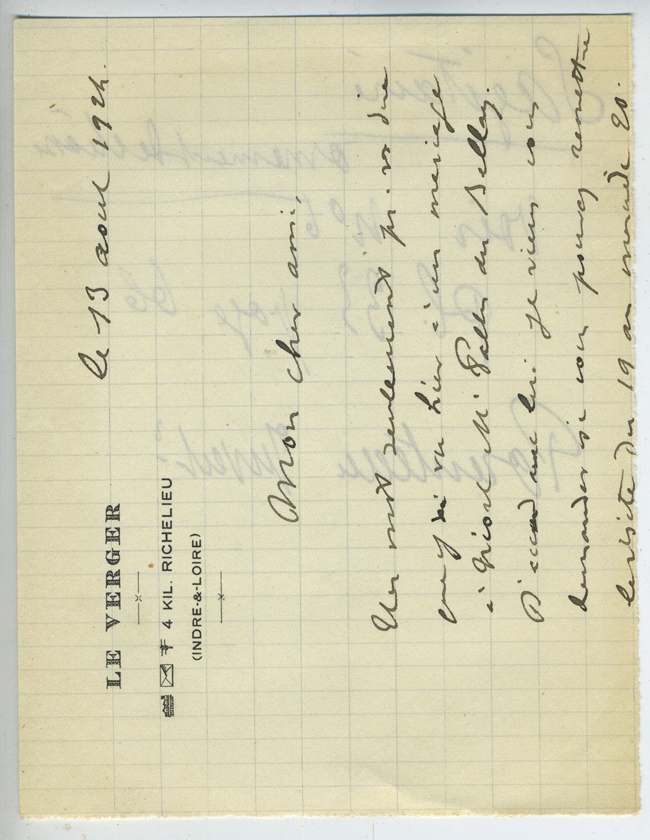 LE VERGER
4 KIL. RICHELIEU
(INDRE-&-LOIRE)
le 13 aout 1924.
Mon cher ami,
Un mot seulement pr. vs dire
que j'ai vu hier à un mariage
à Niort Mr Pallu du Bellay.
D'accord avec lui je viens vous
demander si vous pouvez remettre
la visite du 19 au mercredi 20.